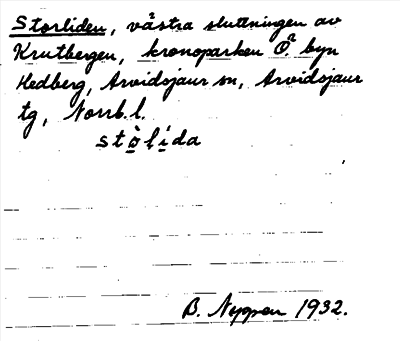 Storliden, västra sluttningen av
Krutbergen, kronoparken Ö. byn
Hedberg, Arvidsjaur sn, Arvidsjaur
tg, Norrb. l.
stò̱lí̱da
B. Nygren 1932.